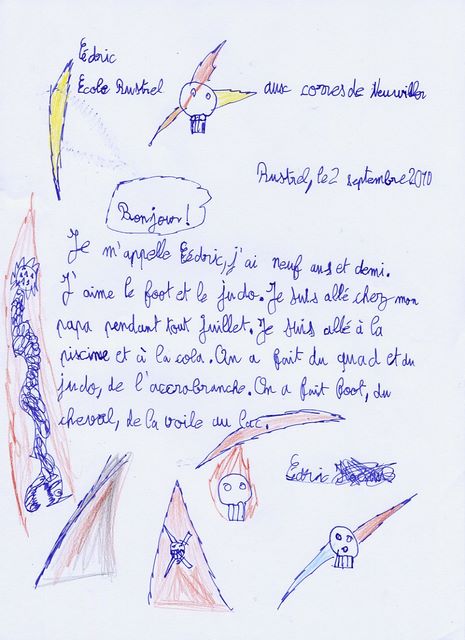 Cédric
Ecole Rustrel aux corres de Neuwiller
Rustrel, le 2 septembre 2010
Bonjour!
Je m'appelle Cédric, j'ai neuf ans et demi.
J'aime le foot et le judo. Je suis allé chez mon
papa pendant tout juillet. Je suis allé à la
piscine et à la cola. On a fait du quad et du
judo, de l'accrobranche. On a fait foot, du
cheval, de la voile au lac.
Cédric